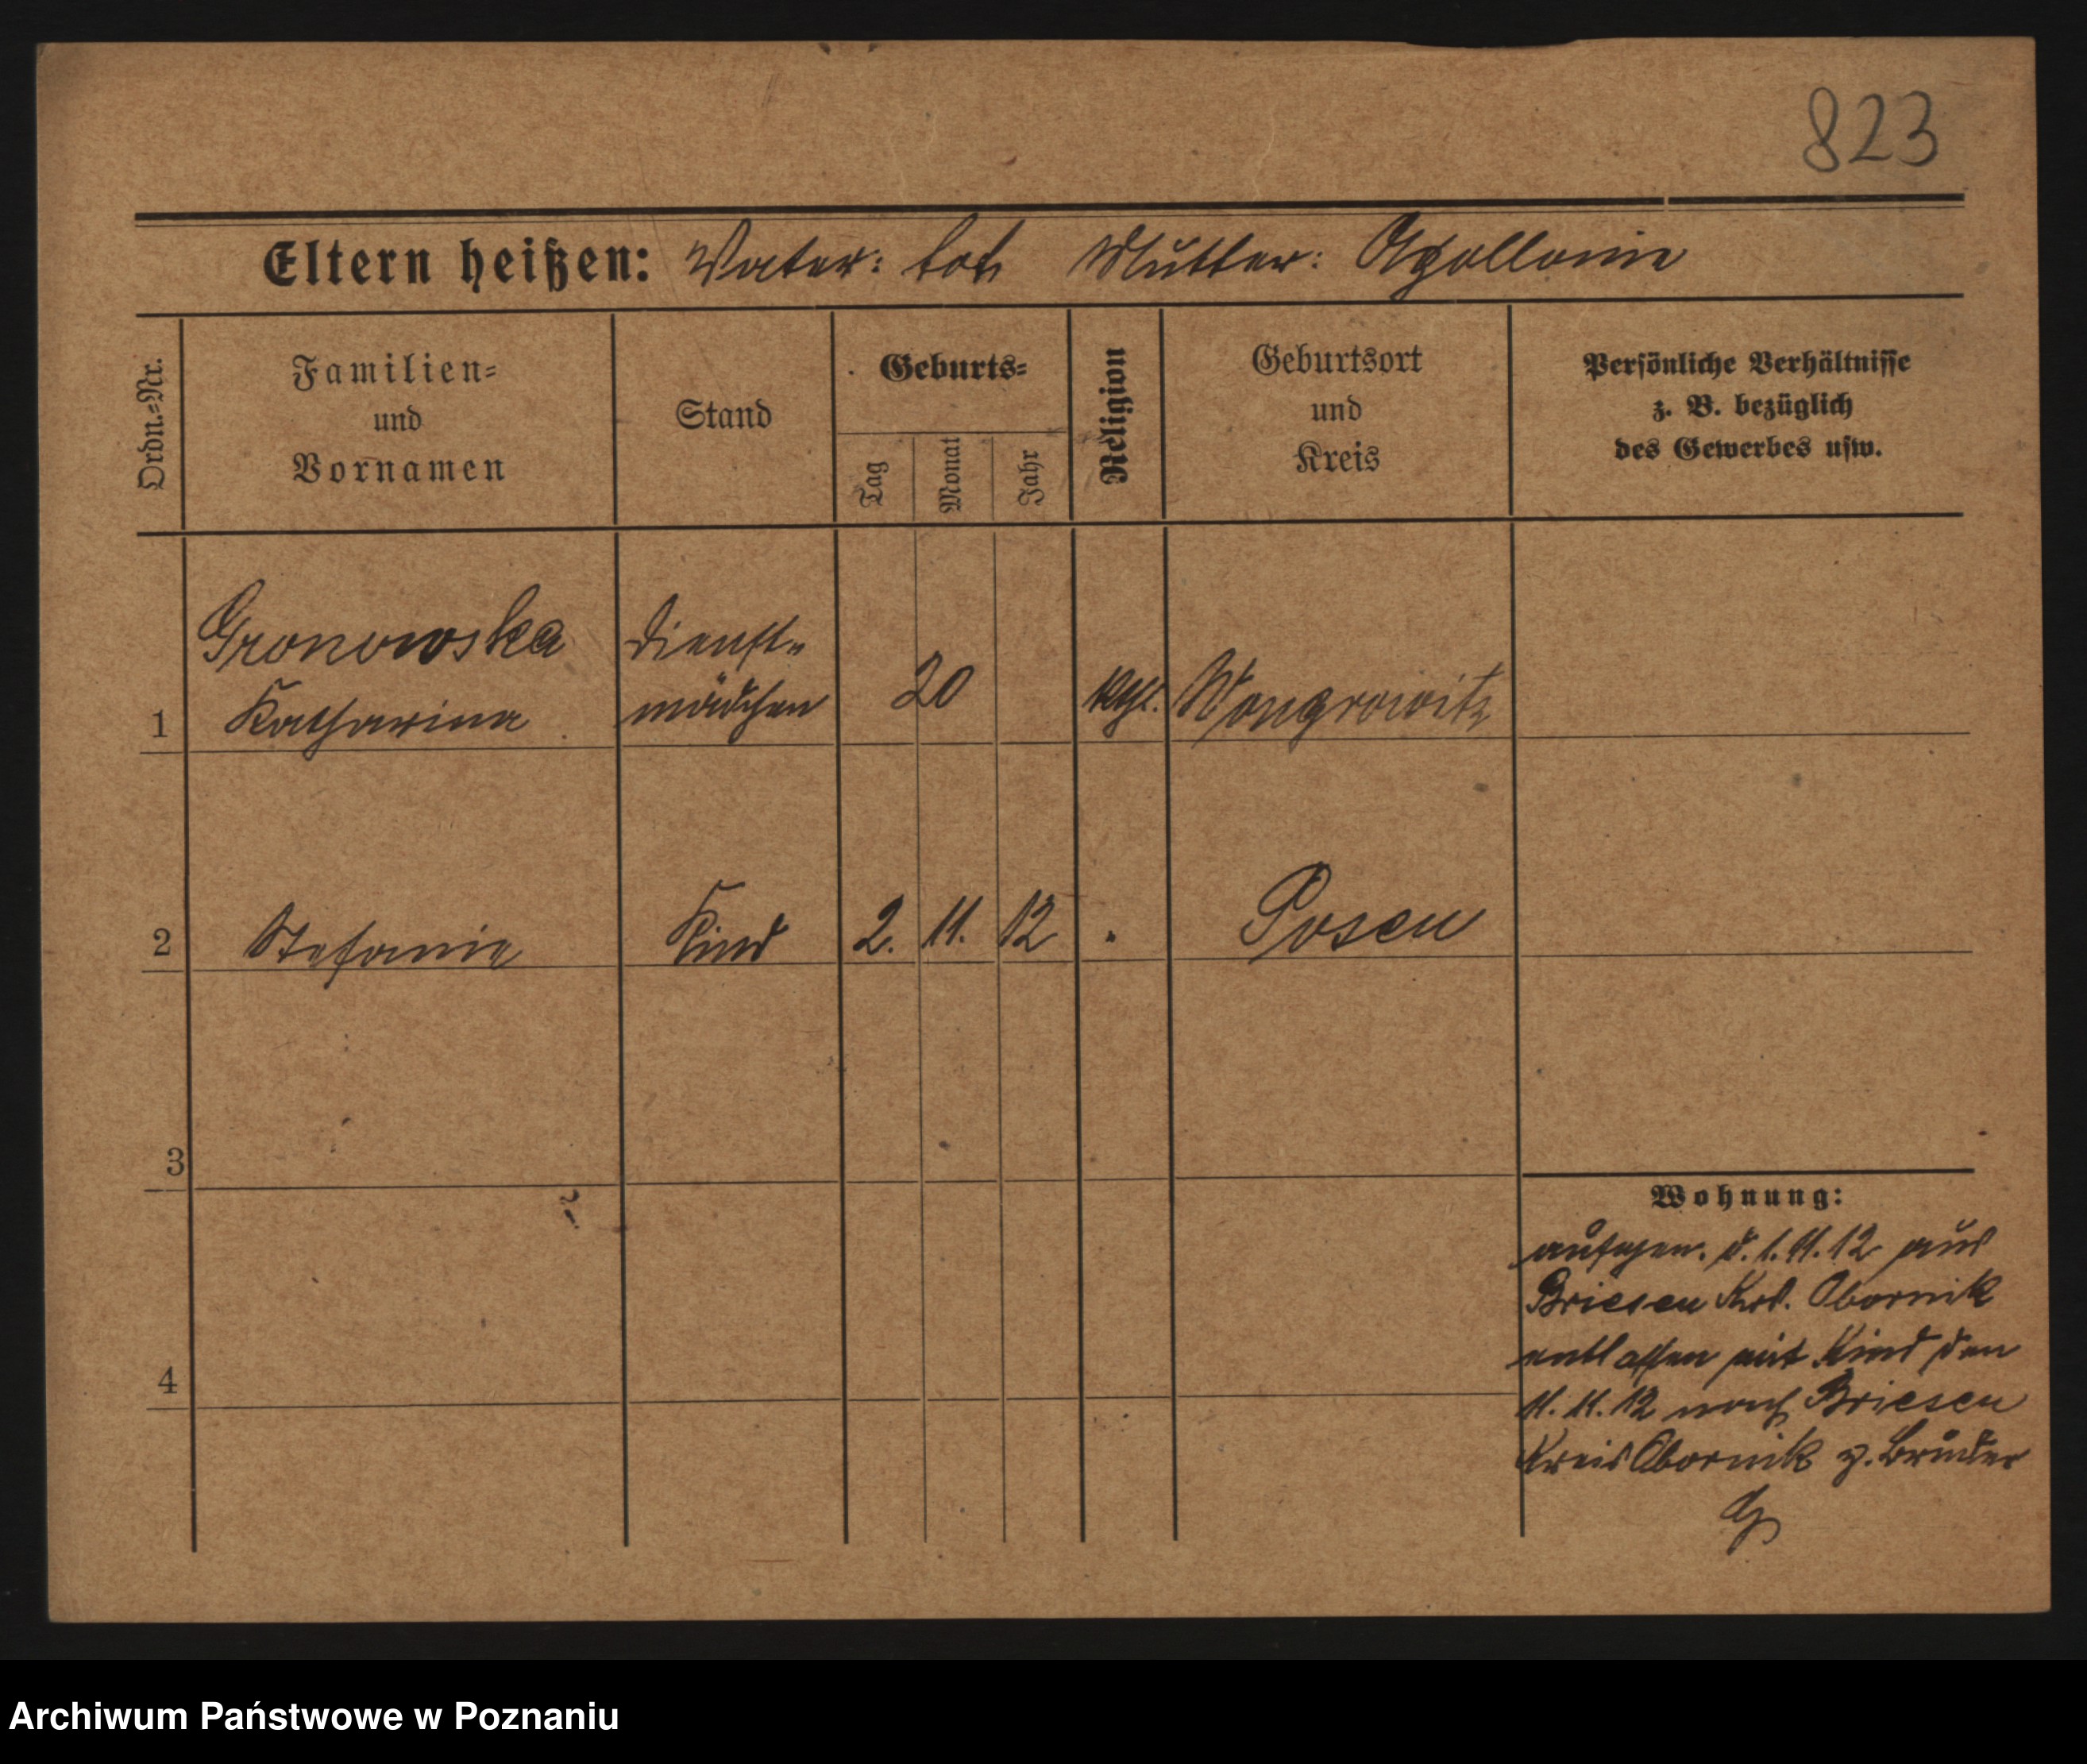 823
Eltern heißen: Vater: tot Mutter: Apollonie
Ordn.=Nr.
Familien=
und
Vornamen
Stand
Geburts=
Tag
Monat
Jahr
Religion
Geburtsort
und
Kreis
Persönliche Verhältnisse
z. B. bezüglich
des Gewerbes usw.
1
Gronowska
Katharina
Dienst=
mädchen
20
Wongrowitz
2
Stefanie
Kind
2. 11. 12
"
Posen
3
4
Wohnung:
aufgen. d. 1.11.12 aus
Briesen Krs. Obornik
entlassen mit Kind den
11.11.12 nach Briesen
Kreis Obornik z. Bruder
Archiwum Państwowe w Poznaniu